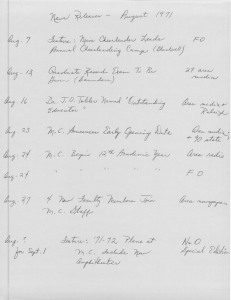 News Releases - August 1971
Aug. 7 Feature: New Cheerleader Leads FO
Annual Cheerleading Camp
Aug. 13 Graduate Record Exam To Be 24 area
Given media
Aug. 16 Dr. J. D. Named "Outstanding Area media +
Educator" Raleigh
Aug. 23 M.C. Announces Early Opening Date Area media
+ 40 state
Aug. 24 M.C. Begins Academic Year Area radio
Aug. 24 " " " " FO
Aug. 27 4 New Faculty Members Join Area newspapers
M.C. Staff
Aug. ? Feature: 71-72 Plans at N&O
for Sept. 1 M.C. Include New Special Edition
Amphitheater